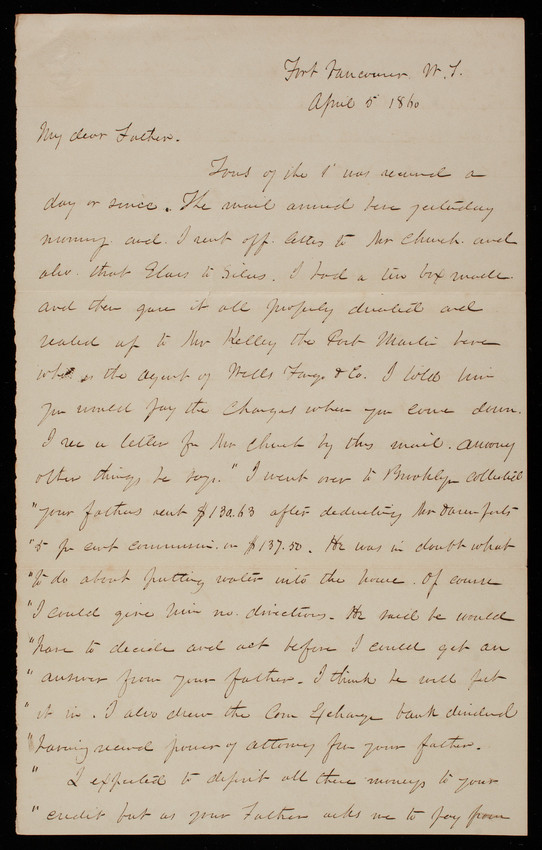 Fort Vancouver W. T.
April 5 1860
My dear Father.
Yours of the 1st was received a
day or since. The mail arrived here yesterday
morning and I sent off letters to Mr Church and
also that to Silas. I had a tin box made
and then gave it all properly directed and
sealed up to Mr Kelley the Post Master here
who is the agent of Wells Fargo & Co. I told him
you would pay the charges when you come down.
I rec a letter fr Mr Church by this mail. among
other things he says. "I went over to Brooklyn collected
"your fathers rent $130.63 after deducting Mr Davenports
"5 pr cent commission on $137.50. He was in doubt what
"to do about putting water into the house. Of course
"I could give him no directions. He said he would
"have to decide and act before I could get an
"answer from your father. I think he will put
"it in. I also drew the Corn Exchange bank dividend
"having recvd power of attorney frm your father.
" I expected to deposit all these moneys to your
"credit but as your Father asks me to pay from